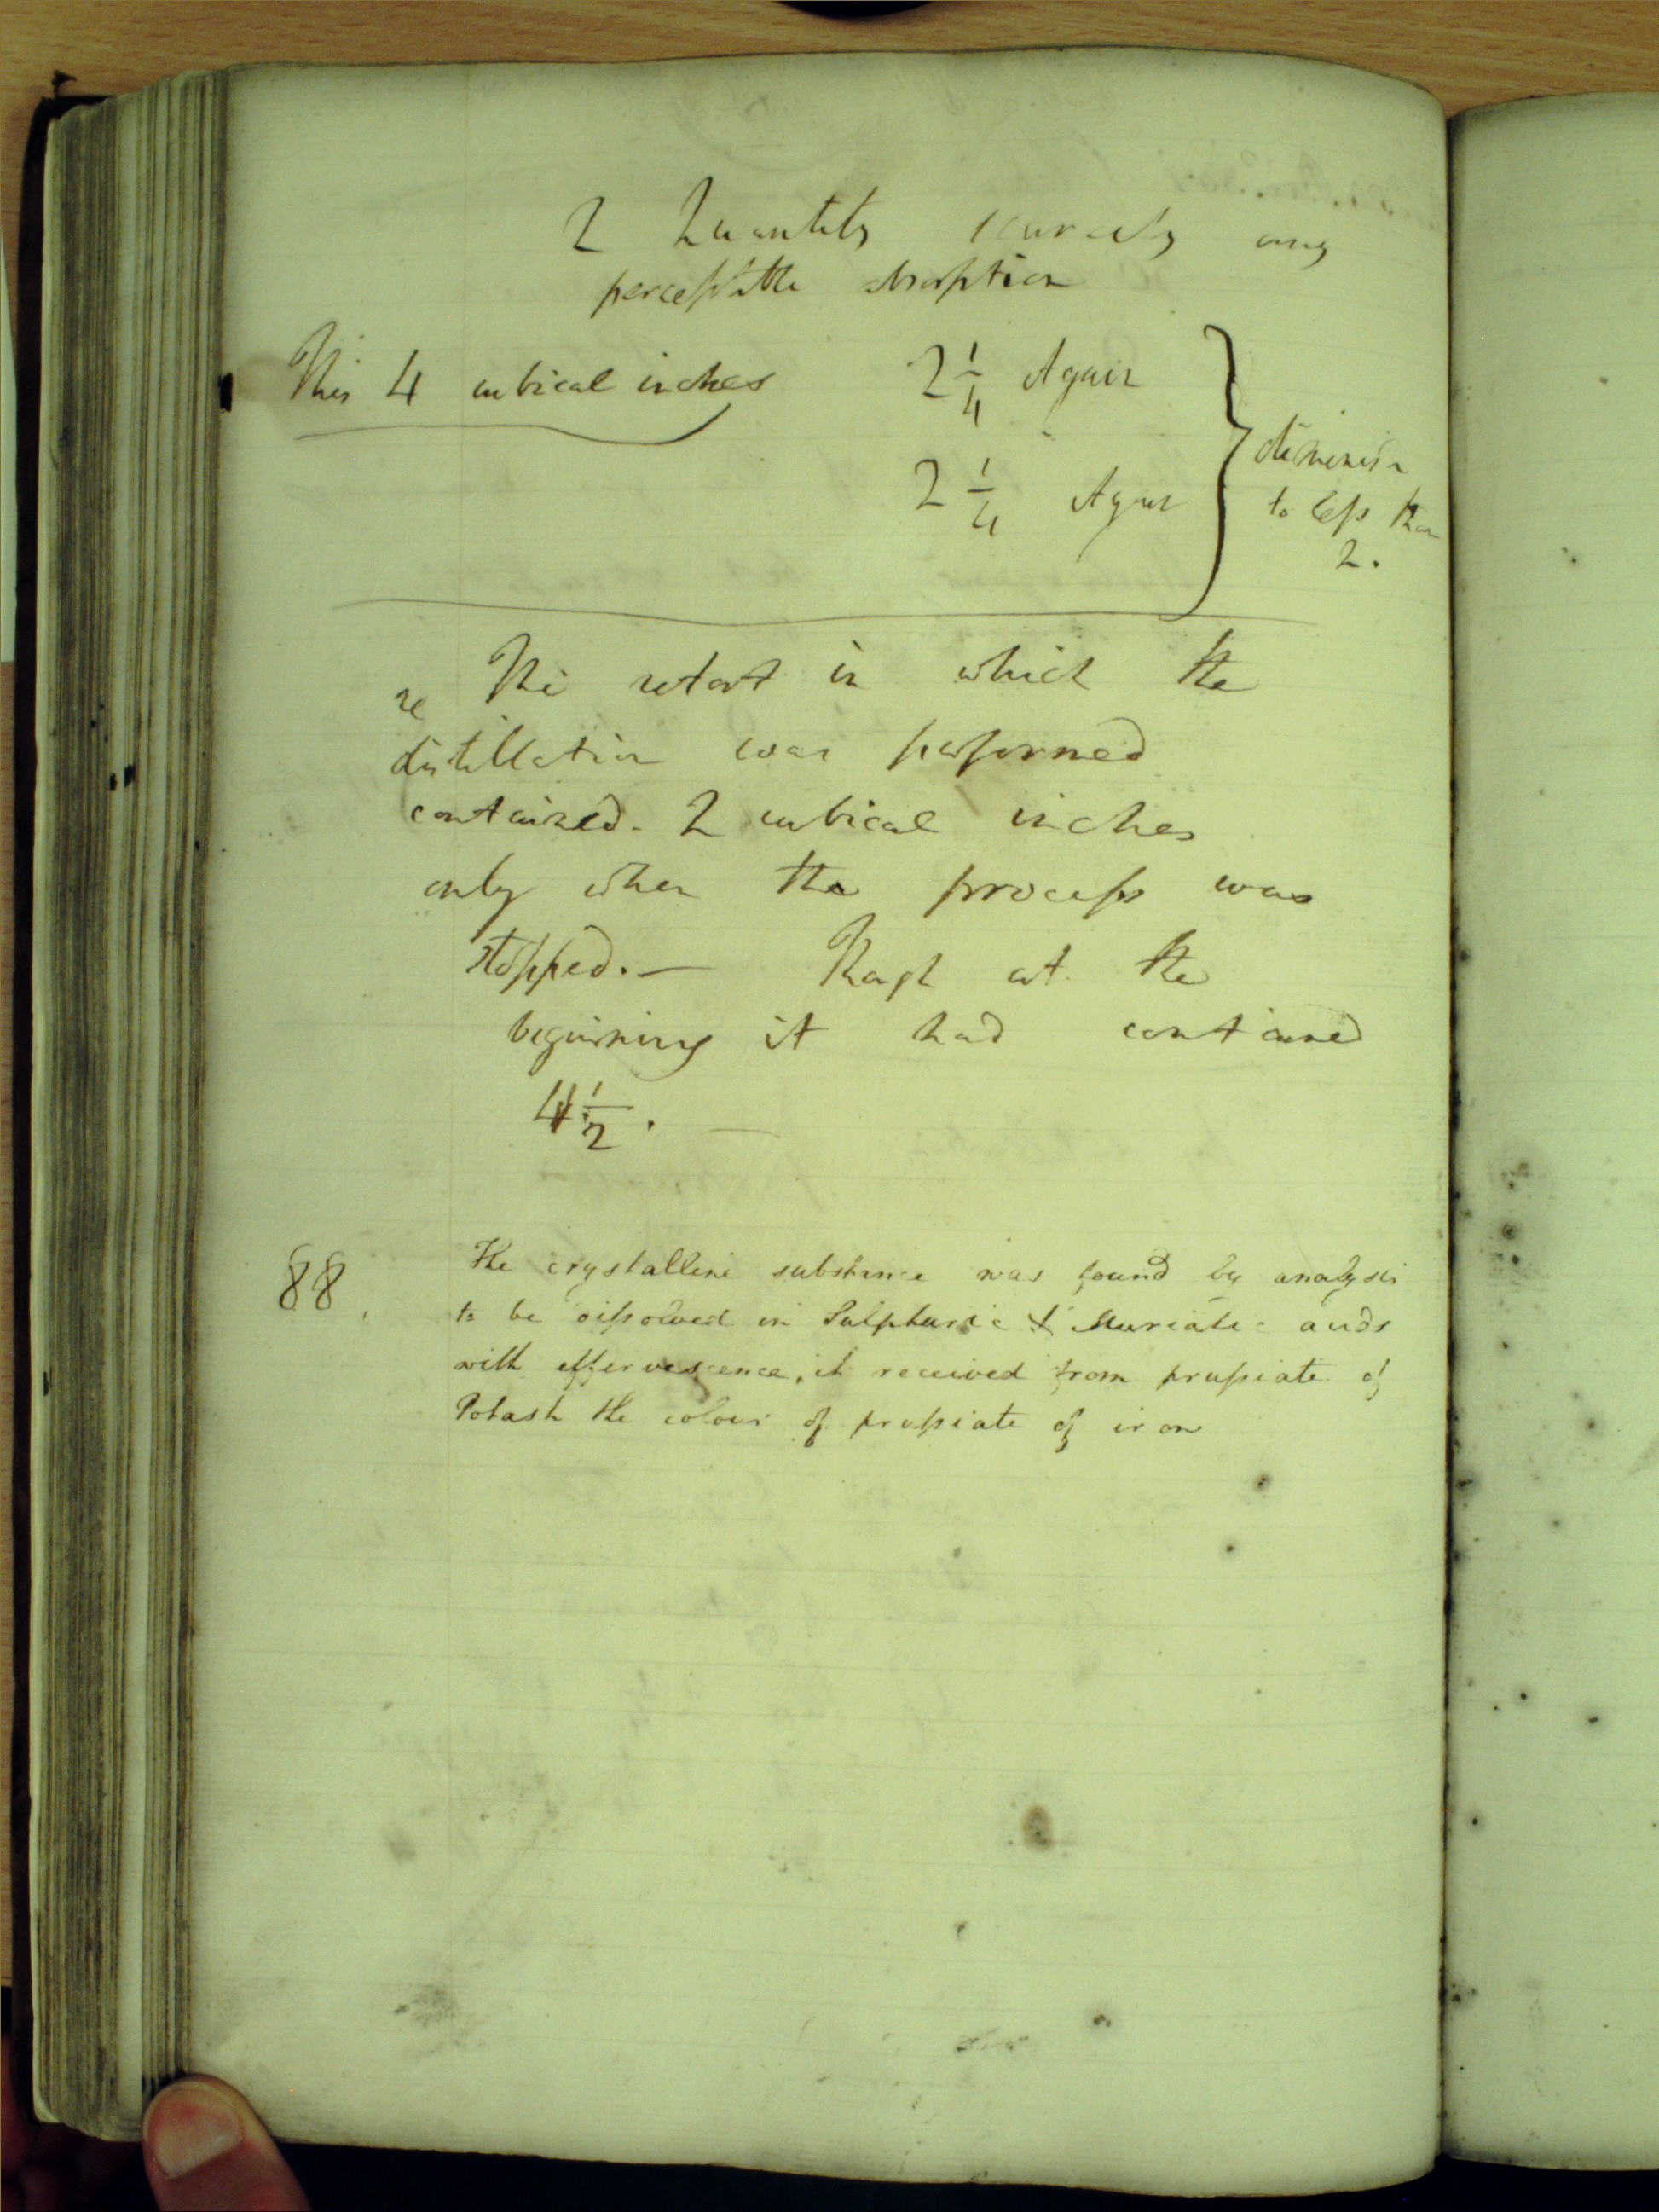 2 Quantity scarcely any
perceptible absorption
This 4 cubical inches 2 1/4 Again
2 1/4 Again
diminish
to less than
2.
The retort in which the
re
distillation was performed
contained. 2 cubical inches
only when the process was
stopped. —
Though at the
beginning it had contained
4 1/2. —
88.
The crystalline substance was found by analysis
to be dissolved in Sulphuric & Muriatic acids
with effervescence, it received from prussiate of
Potash the colour of prussiate of iron